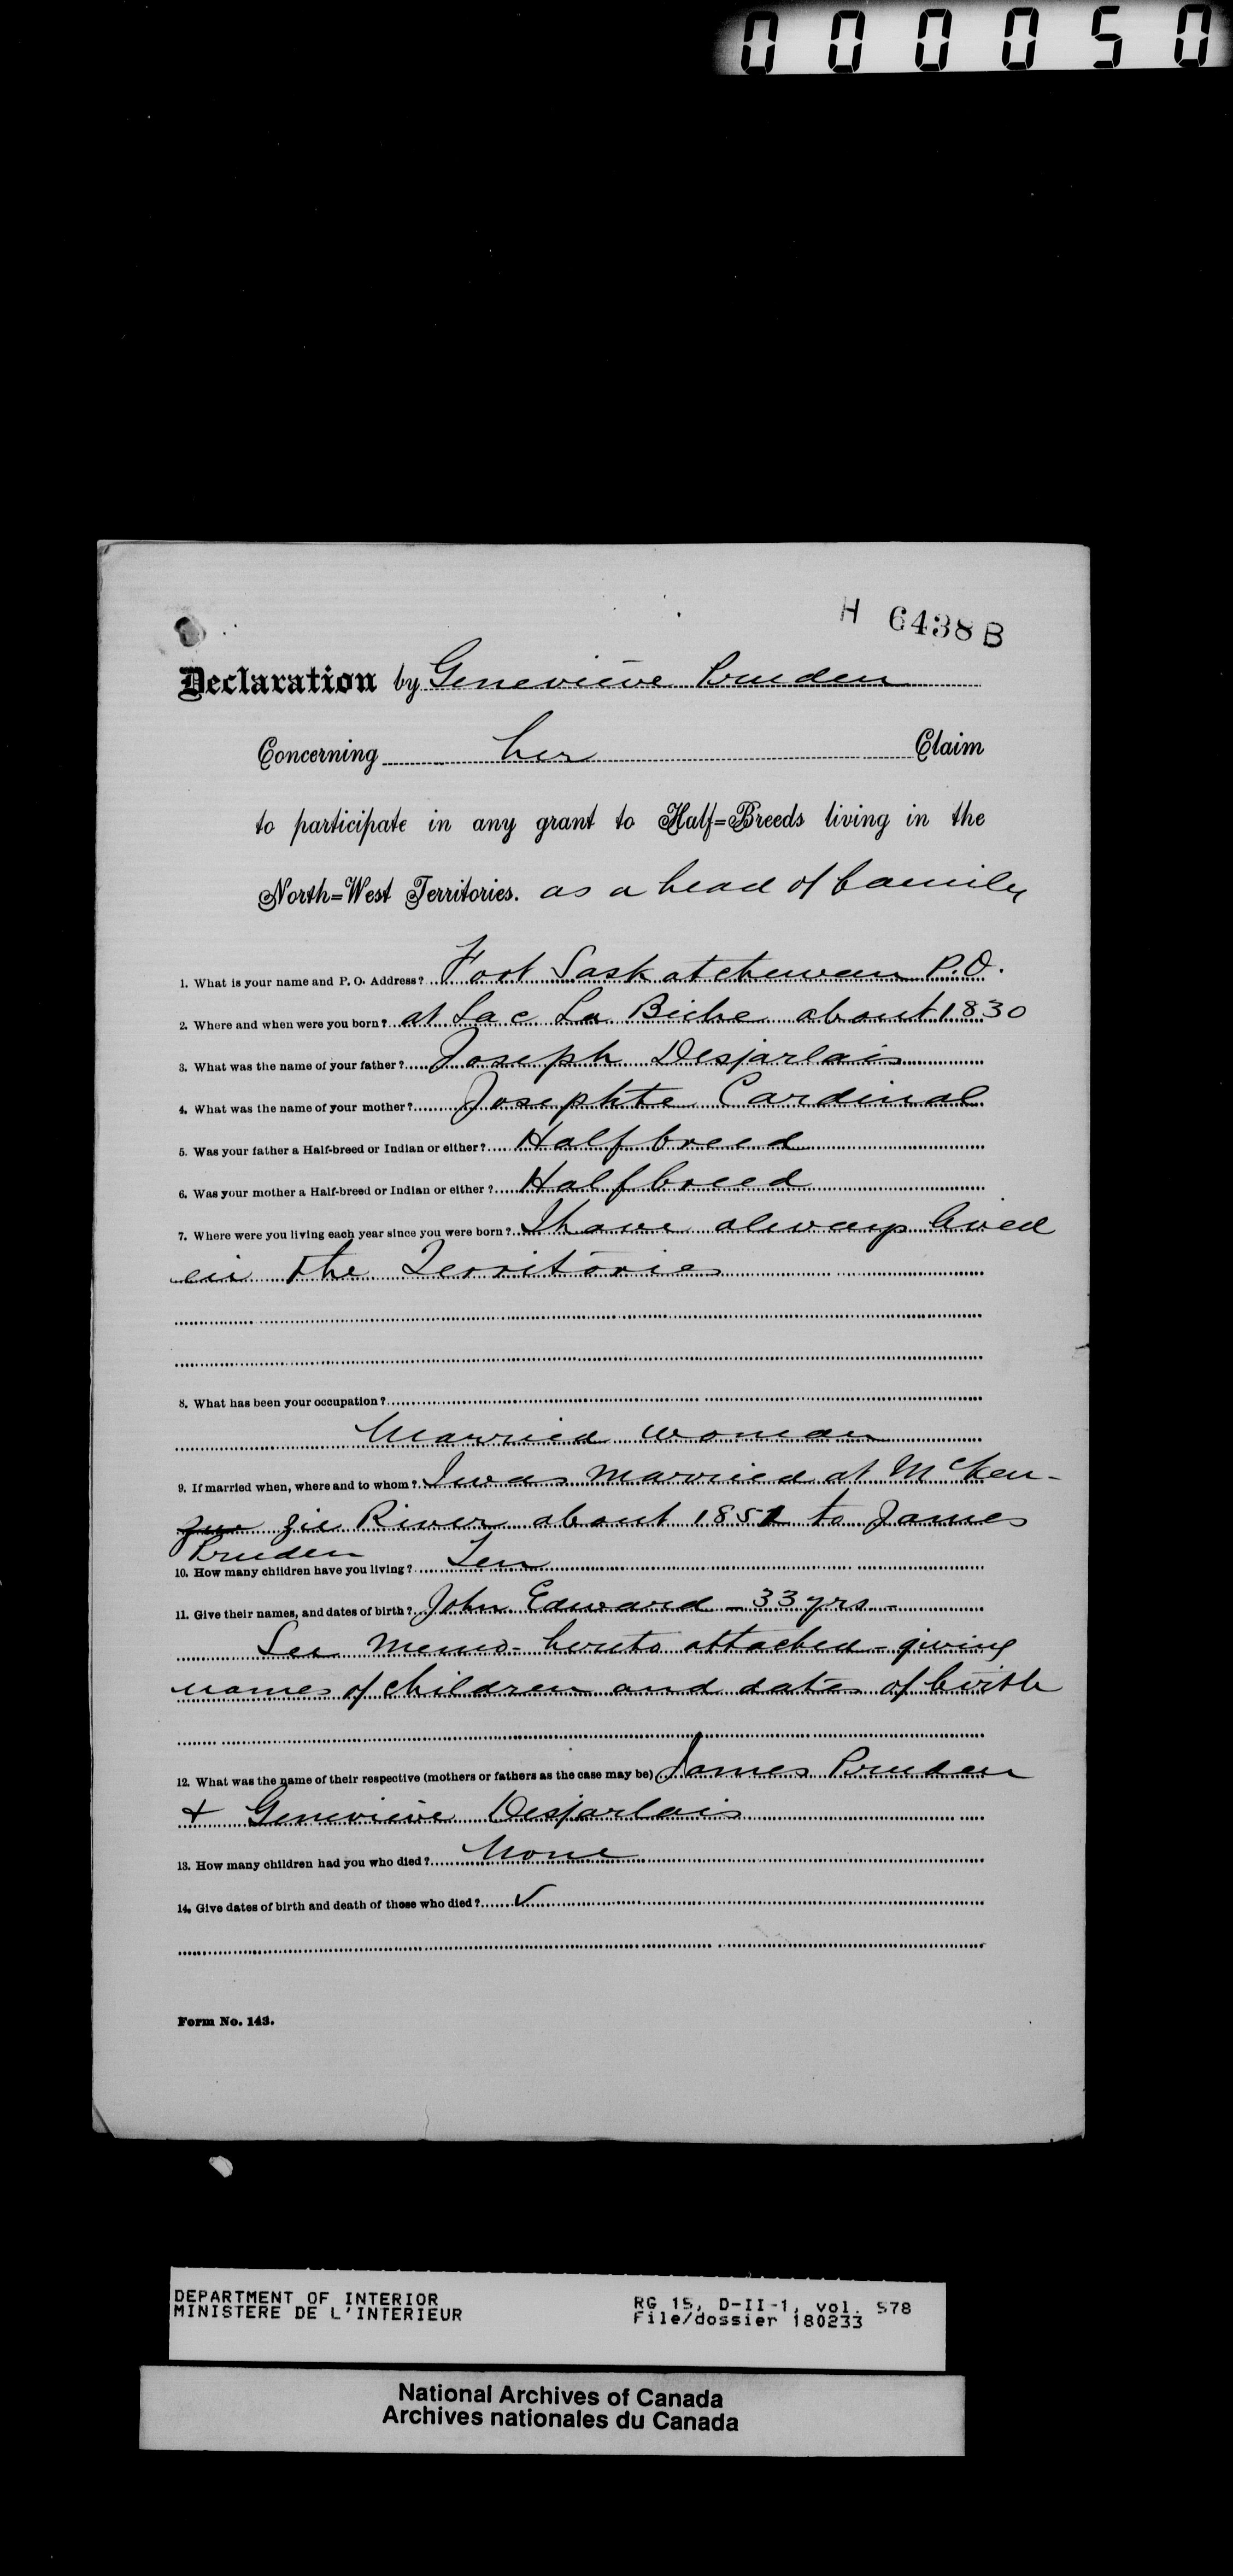 000050
H 6438 B
Declaration by Genevieve Pruden
Concerning her Claim
to participate in any grant to Half=Breeds living in the
North=West Territories. as a head of family
1. What is your name and P. O. Address? Fort Saskatchewan P.O.
2. Where and when were you born? at Lac La Biche about 1830
3. What was the name of your father? Joseph Desjarlais
4. What was the name of your mother? Josephte Cardinal
5. Was your father a Half-breed or Indian or either? Halfbreed
6. Was your mother a Half-breed or Indian or either? Halfbreed
7. Where were you living each year since you were born? I have always lived
in the Territories
8. What has been your occupation?
Married woman
9. If married when, where and to whom? I was married at McKen-
zie River about 1851 to James
Pruden
10. How many children have you living? Ten
11. Give their names, and dates of birth? John Edward - 33 yrs -
See memo - hereto attached - giving
names of children and dates of birth
12. What was the name of their respective (mothers or fathers as the case may be) James Pruden
+ Genevieve Desjarlais
13. How many children had you who died? None
14. Give dates of birth and death of those who died? ✓
Form No. 143.
DEPARTMENT OF INTERIOR RG 15, D-II-1, vol. 578
MINISTERE DE L'INTERIEUR File/dossier 180233
National Archives of Canada
Archives nationales du Canada